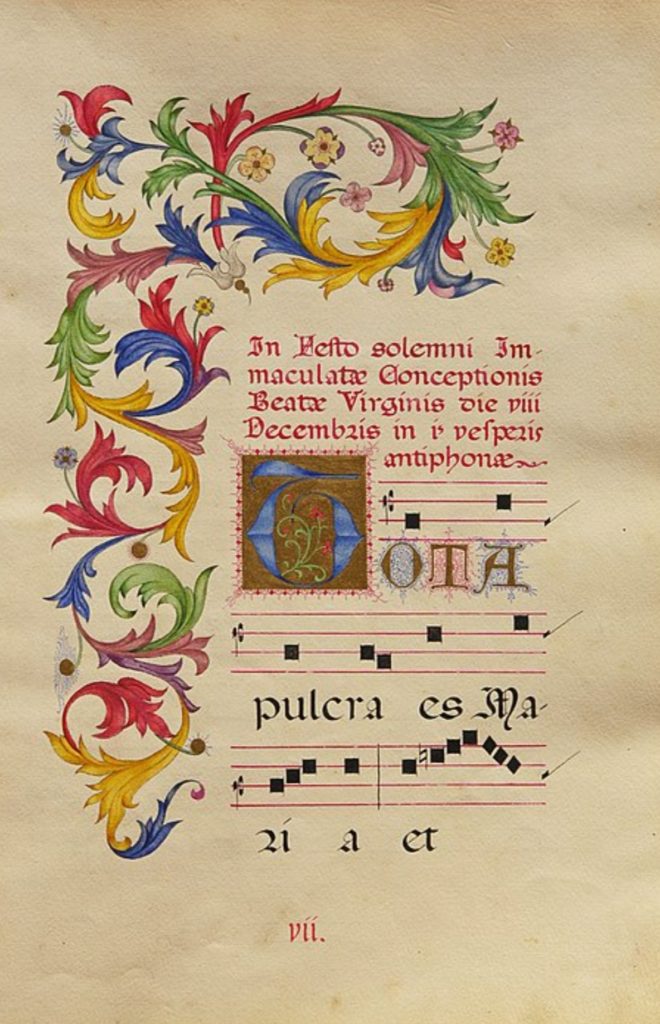 In Festo solemni Im-
maculatæ Conceptionis
Beatæ Virginis die viii
Decembris in is vesperis
antiphonæ
TOTA
pulcra es Ma-
ri a et
vii.